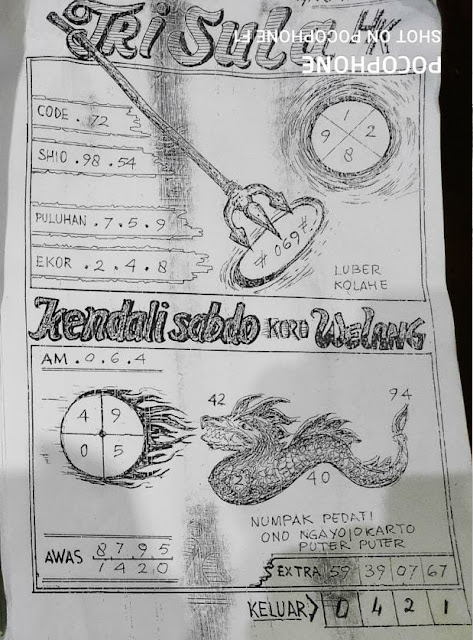 Tri Sula HK
SHOT ON POCOPHONE F1
POCOPHONE
CODE . 72
SHIO . 98 . 54
PULUHAN . 7 . 5 . 9
EKOR . 2 . 4 . 8
1
9 2
8
# 069 #
LUBER
KOLAHE
Kendali sabdo KORO Welang
AM . 0 . 6 . 4
4 9
0 5
42
94
40
NUMPAK PEDATI
ONO NGAYOJOKARTO
PUTER PUTER
AWAS 8 7 9 5
1 4 2 0
EXTRA 59 39 07 67
KELUAR> 0 4 2 1